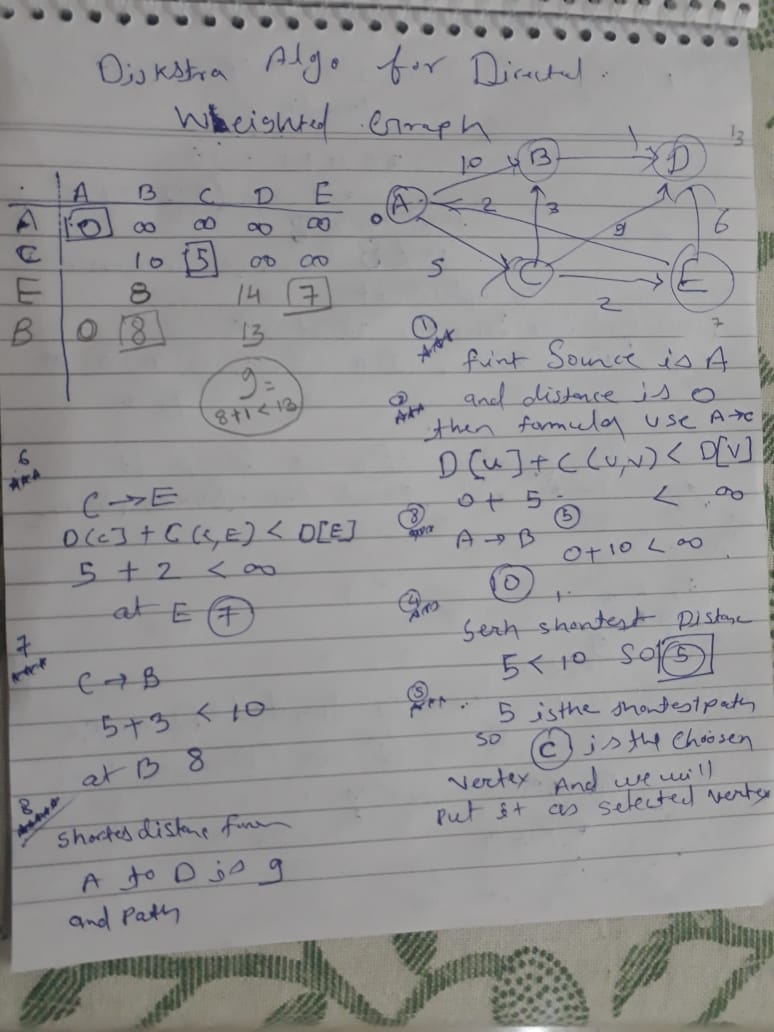 Dijkstra Algo for Directed
Weighted Graph
13
A B C D E
A 0 ∞ ∞ ∞ ∞
C 10 5 ∞ ∞
E 8 14 7
B 0 8 13
9=
8+1<13
10 B 1 D
0 A 2 3 9 6
5 C 2 E
7
1
Source is A
2 and distance is 0
then formula use A→C
D[u]+C(u,v)<D[v]
0+5 < ∞
5
3
A→B 0+10<∞
10
4
shortest Distance
5<10 SO 5
5
5 is the shortest path
so C is the choosen
vertex And we will
Put it as selected vertex
6
C→E
D[C]+C(C,E)<D[E]
5+2<∞
at E 7
7
C→B
5+3<10
at B 8
8
Shortes distanc
A to D is 9
and Path